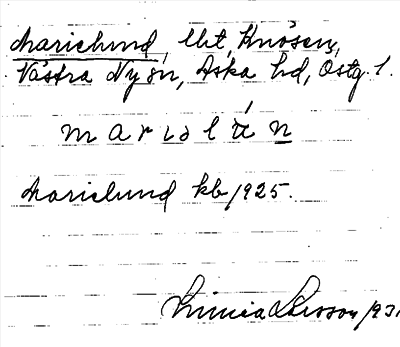 Marielund, lht, Knösen,
Västra Ny sn, Aska hd, Östg. l.
marielun
Marielund kb 1925.
Linnea Larsson 193